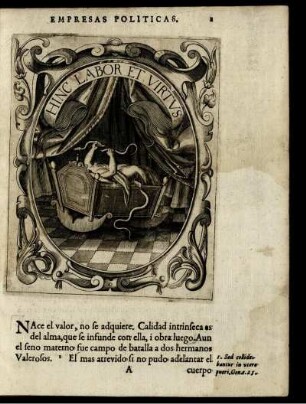 EMPRESAS POLITICAS.
HINC LABOR ET VIRTVS
NAce el valor, no se adquiere, Calidad intrinseca es
del alma, que se infunde con ella, i obra luego. Aun
el seno materno fue campo de batalla a dos hermanos
Valerosos. ¹ El mas atrevido si no pudo adelantar el
1. Sed collide-
bantur in utero
pueri, Gene. 25.
A cuerpo